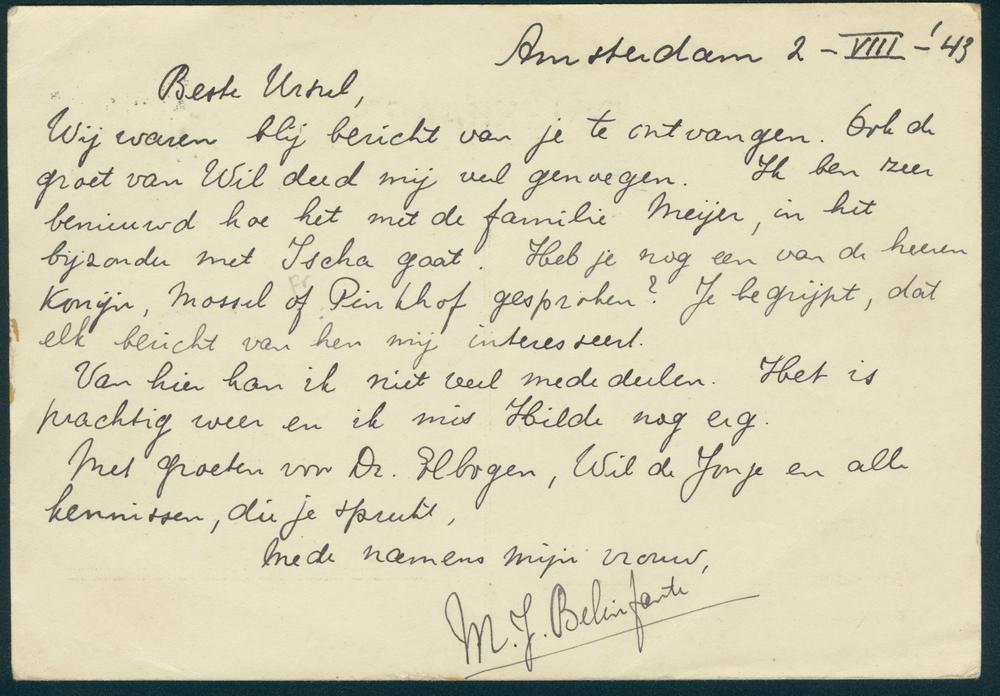 Amsterdam 2-VIII-'43
Beste Ursel,
Wij waren blij bericht van je te ontvangen. Ook de
groet van Wil deed mij veel genoegen. Ik ben zeer
benieuwd hoe het met de familie Meijer, in het
bijzonder met Ischa gaat. Heb je nog een van de heeren
Konijn, Mossel of Pinkhof gesproken? Je begrijpt, dat
elk bericht van hen mij interesseert.
Van hier kan ik niet veel mededeelen. Het is
prachtig weer en ik mis Hilde nog erg.
Met groeten voor Dr. Elbogen, Wil de Jonje en alle
kennissen, die je spreekt,
Mede namens mijn vrouw,
M. J. Belinfante